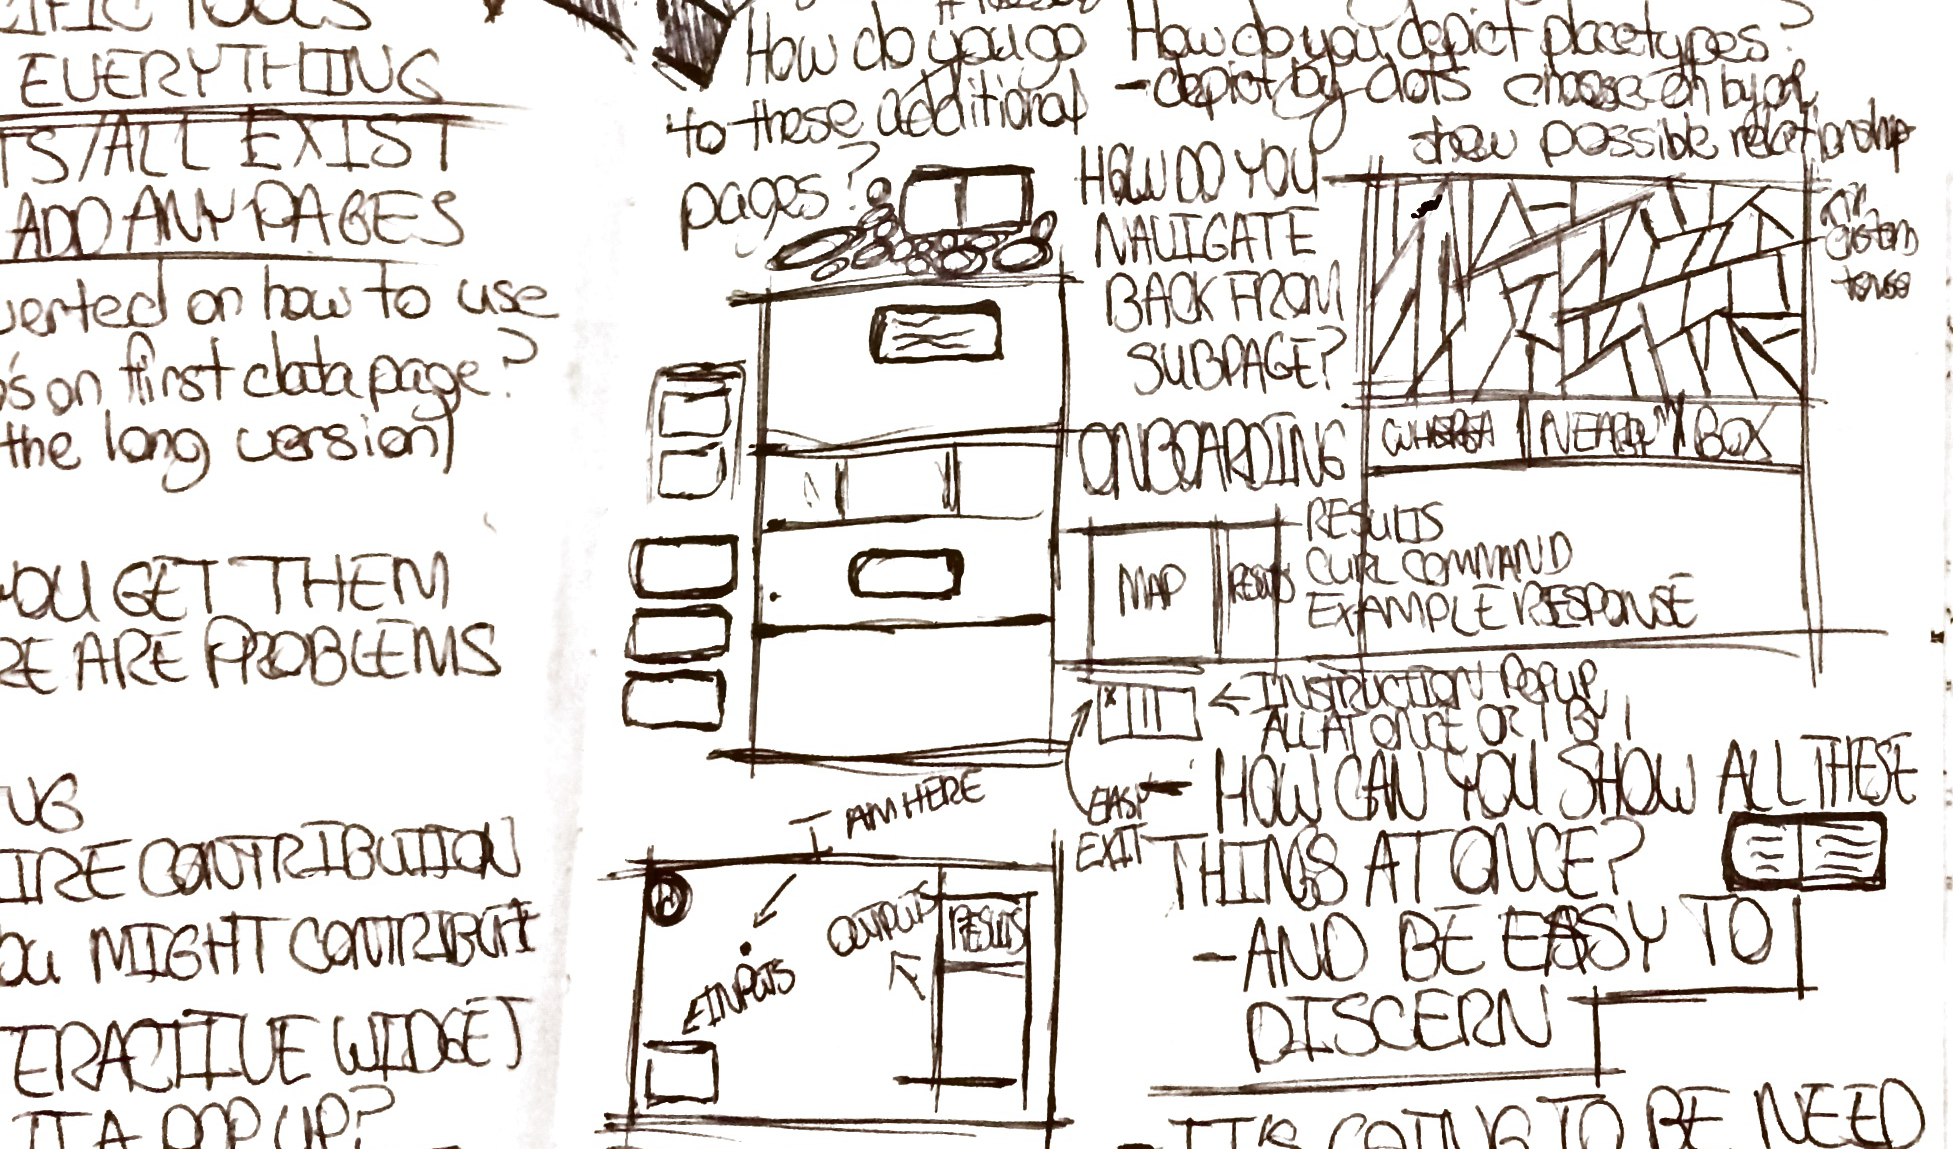 TOOLS
EVERYTHING
TS/ALL EXIST
ADD ANY PAGES
verted on how to use
's on first data page?
the long version)
YOU GET THEM
RE ARE PROBLEMS
IRE CONTRIBUTION
OU MIGHT CONTRIBUT
ERACTIVE WIDGET
IT A POP UP?
How do you go
to these additional
pages?
How do you depict placetypes?
-depict by dots choose on by
show possible relationship
HOW DO YOU
NAVIGATE
BACK FROM
SUBPAGE?
NEARBY
BOX
ONBOARDING
MAP
RESULTS
RESULTS
CURL COMMAND
EXAMPLE RESPONSE
← INSTRUCTION POPUP
ALL AT ONCE OR 1 BY 1
EASY
EXIT
- HOW CAN YOU SHOW ALL THESE
THINGS AT ONCE?
- AND BE EASY TO
DISCERN
- IT'S GOING TO BE NEED
I AM HERE
INPUTS
OUTPUTS
RESULTS